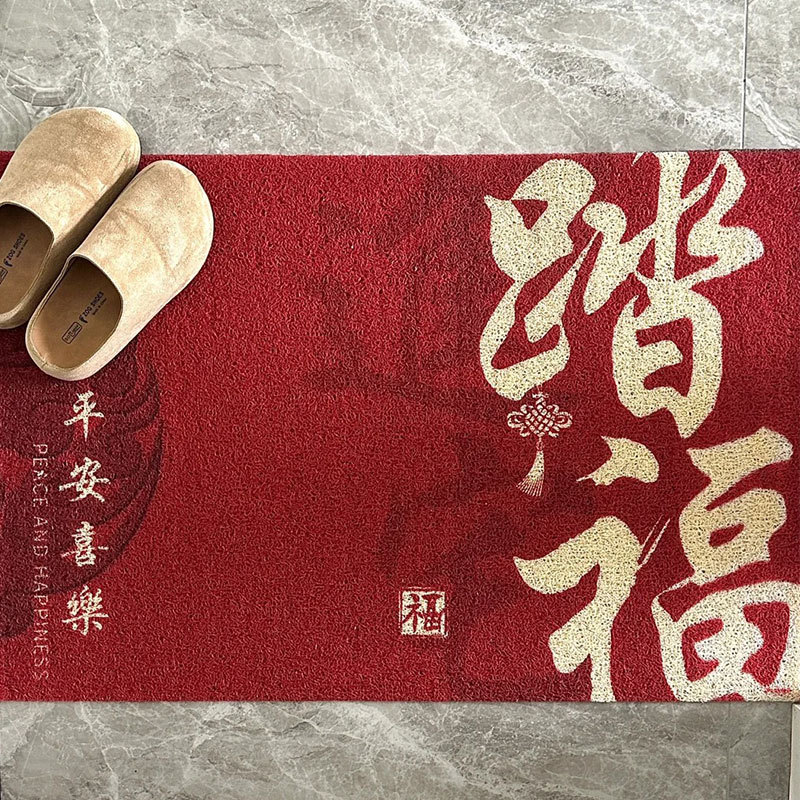 踏福
福
平安喜樂
PEACE AND HAPPINESS
ZOQ SHOES